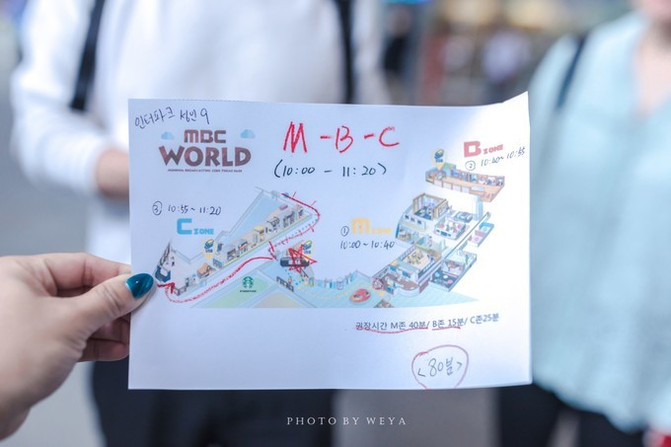 인터파크 심번 9
MBC
WORLD
M - B - C
(10:00 - 11:20)
B ZONE
② 10:40~10:55
③ 10:55 ~ 11:20
C ZONE
① M ZONE
10:00 ~ 10:40
권장시간 M존 40분/ B존 15분/ C존25분
<80분>
PHOTO BY WEYA